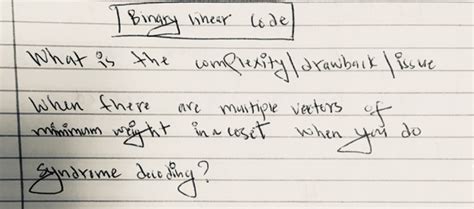 Binary linear code
What is the complexity/drawback/issue
When there are multiple vectors of
minimum weight in a coset when you do
syndrome decoding?